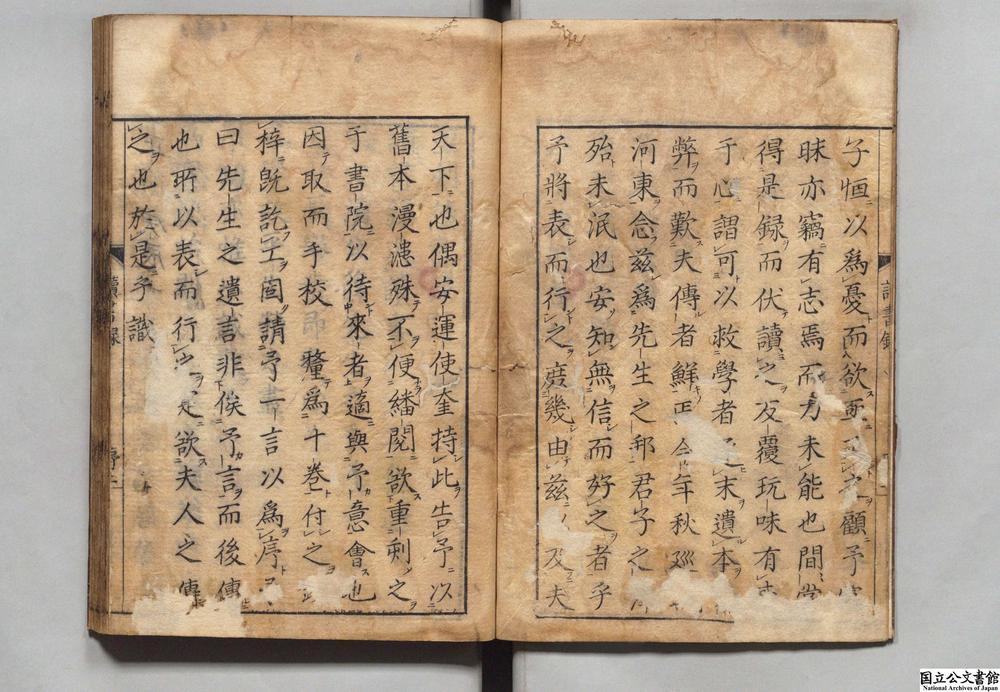 子恒以爲憂而欲亟
昧亦竊有志焉而力未能也間
得是録而伏讀之反覆玩味有
于心謂可以救學者末遺本
弊而歎夫傳者鮮今年秋巡
河東念兹爲先生之邦君子之
殆未泯也安知無信而好之者乎
予將表而行之庶幾由兹及夫
天下也偶安運使奎持此告予以
舊本漫漶殊不便繙閱欲重刻之
于書院以待來者適與予意會也
因取而手校釐爲十巻付之
梓既訖工固請予一言以爲序
曰先生之遺言非俟予言而後傳
也所以表而行之是欲夫人之傳
之也於是乎識
讀書録
序二
国立公文書館
National Archives of Japan